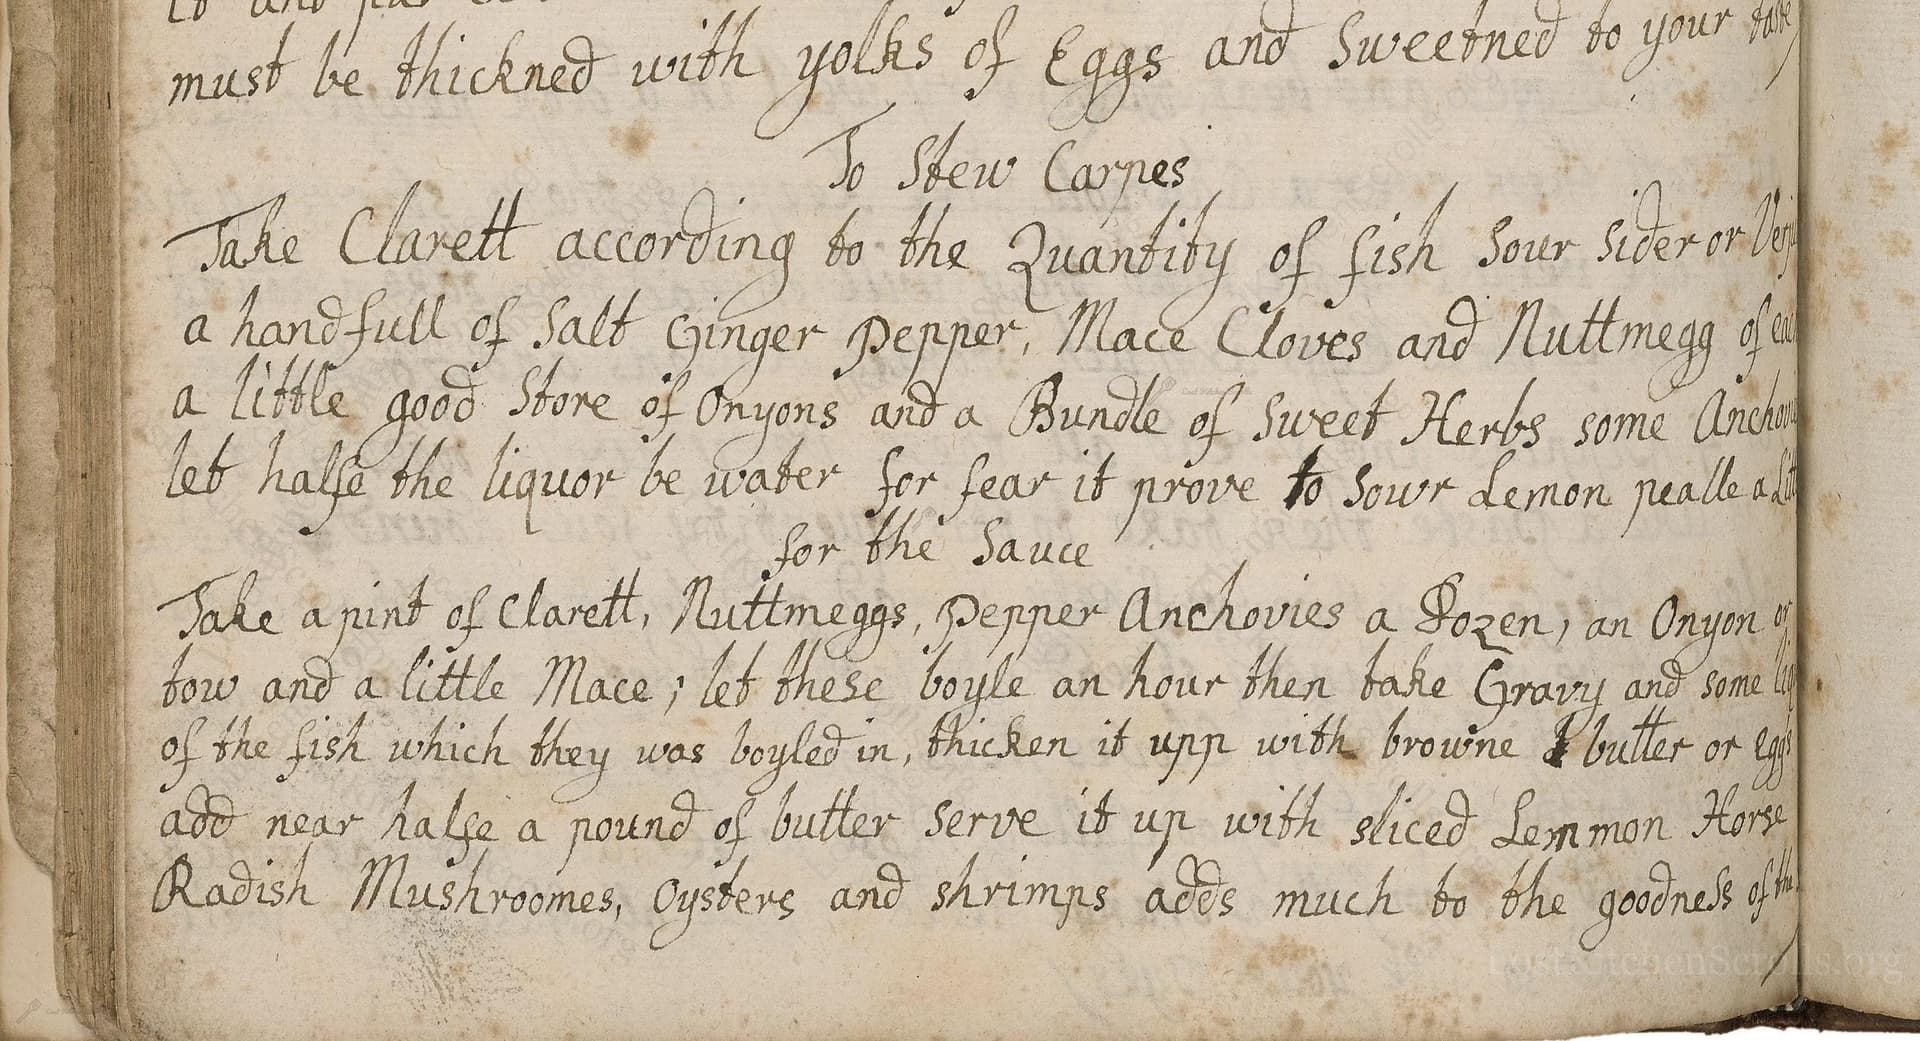 must be thickned with yolks of Eggs and Sweetned to your taste
To Stew Carpes
Take Clarett according to the Quantity of fish Sour Sider or
a handfull of Salt Ginger Pepper, Mace Cloves and Nuttmegg of
a little good Store of Onyons and a Bundle of Sweet Herbs some
let halfe the liquor be water for fear it prove to Sowr Lemon pealle a
for the Sauce
Take a pint of Clarett, Nuttmeggs, Pepper Anchovies a Dozen, an Onyon or
tow and a little Mace; let these boyle an hour then take Gravy and some
of the fish which they was boyled in, thicken it upp with browne butter or eggs
add near halfe a pound of butter Serve it up with sliced Lemmon Horse
Radish Mushroomes, Oysters and shrimps adds much to the goodness of the
LostKitchenScrolls.org